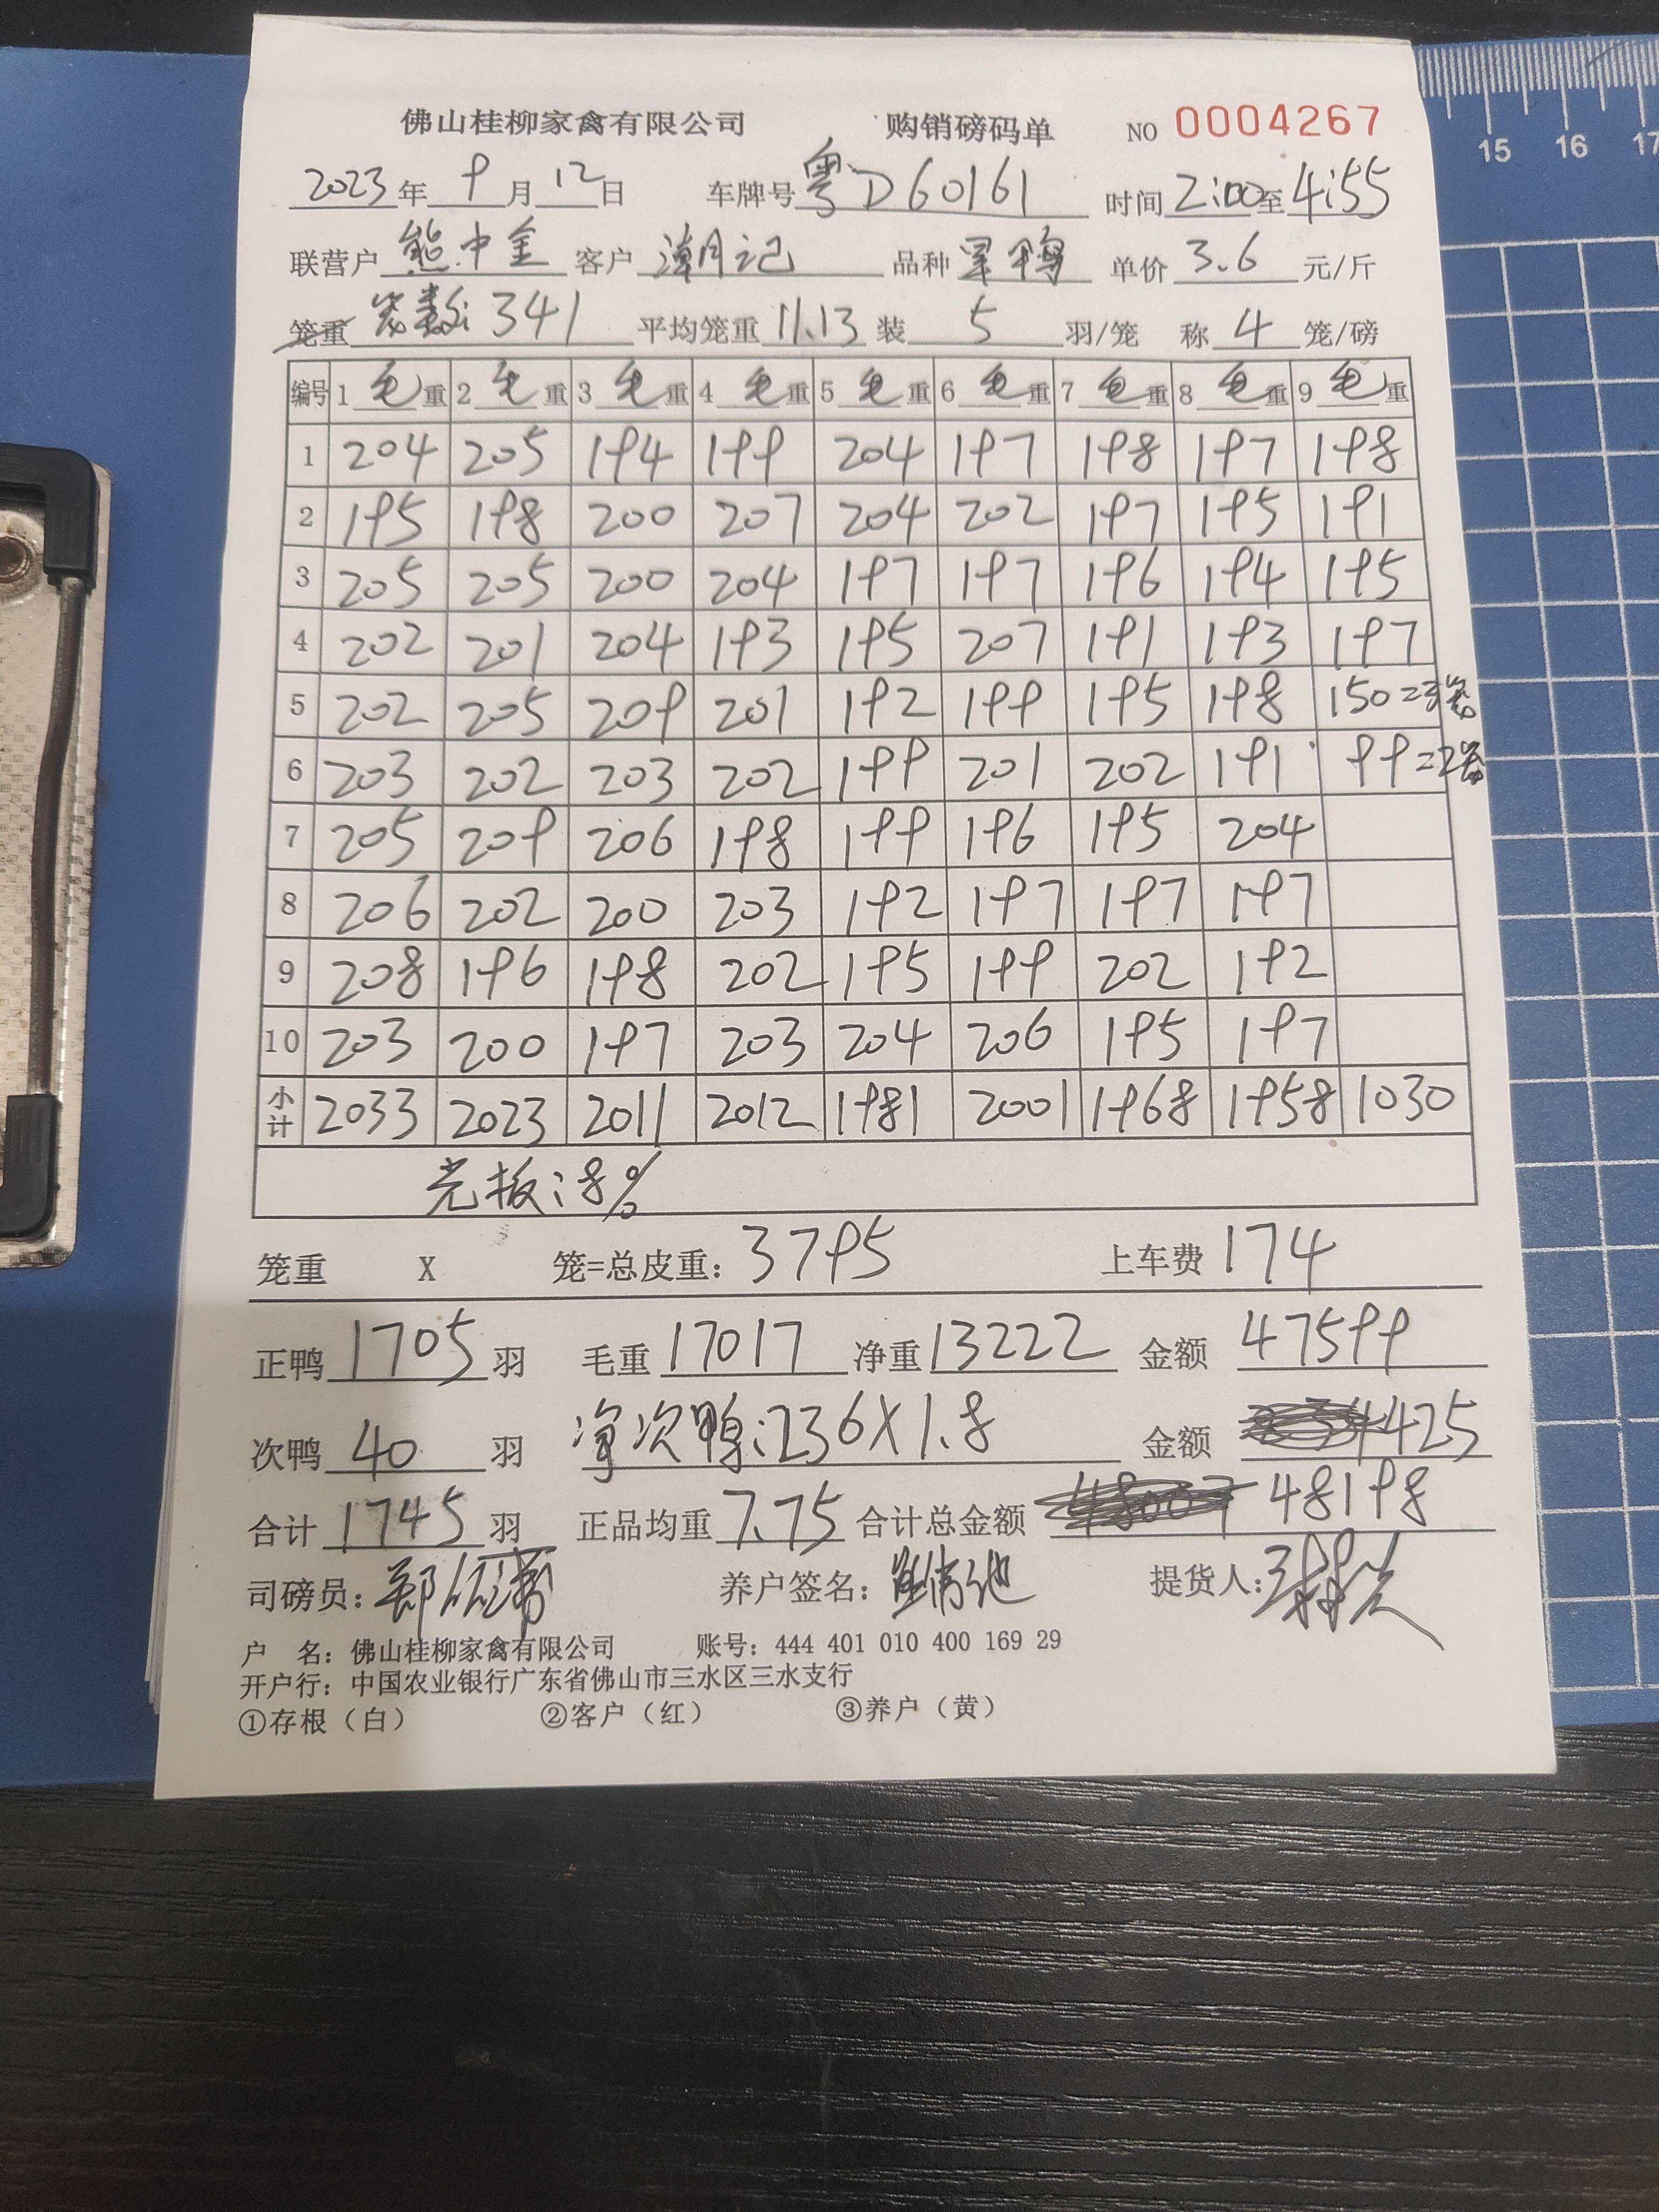 佛山桂柳家禽有限公司 购销磅码单 NO 0004267
2023年 9月 12日 车牌号 粤D60161 时间 2:00至4:55
联营户 熊中金 客户 潮记 品种 单价 3.6 元/斤
笼重 笼数: 341 平均笼重 11.13 装 5 羽/笼 称 4 笼/磅
编号 1 毛重 2 毛重 3 毛重 4 毛重 5 毛重 6 毛重 7 毛重 8 毛重 9 毛重
1 204 205 194 199 204 197 198 197 198
2 195 198 200 207 204 202 197 195 191
3 205 205 200 204 197 197 196 194 195
4 202 201 204 193 195 207 191 193 197
5 202 205 209 201 192 199 195 198 150=3笼
6 203 202 203 202 199 201 202 191 99=2笼
7 205 209 206 198 199 196 195 204
8 206 202 200 203 192 197 197 197
9 208 196 198 202 195 199 202 192
10 203 200 197 203 204 206 195 197
小计 2033 2023 2011 2012 1981 2001 1968 1958 1030
光板:8%
笼重 X 笼=总皮重: 3795 上车费 174
正鸭 1705 羽 毛重 17017 净重 13222 金额 47599
次鸭 40 羽 净次鸭:236X1.8 金额 425
合计 1745 羽 正品均重 7.75 合计总金额 48198
司磅员: 养户签名: 提货人:
户 名: 佛山桂柳家禽有限公司 账号: 444 401 010 400 169 29
开户行: 中国农业银行广东省佛山市三水区三水支行
①存根（白） ②客户（红） ③养户（黄）
15 16 17